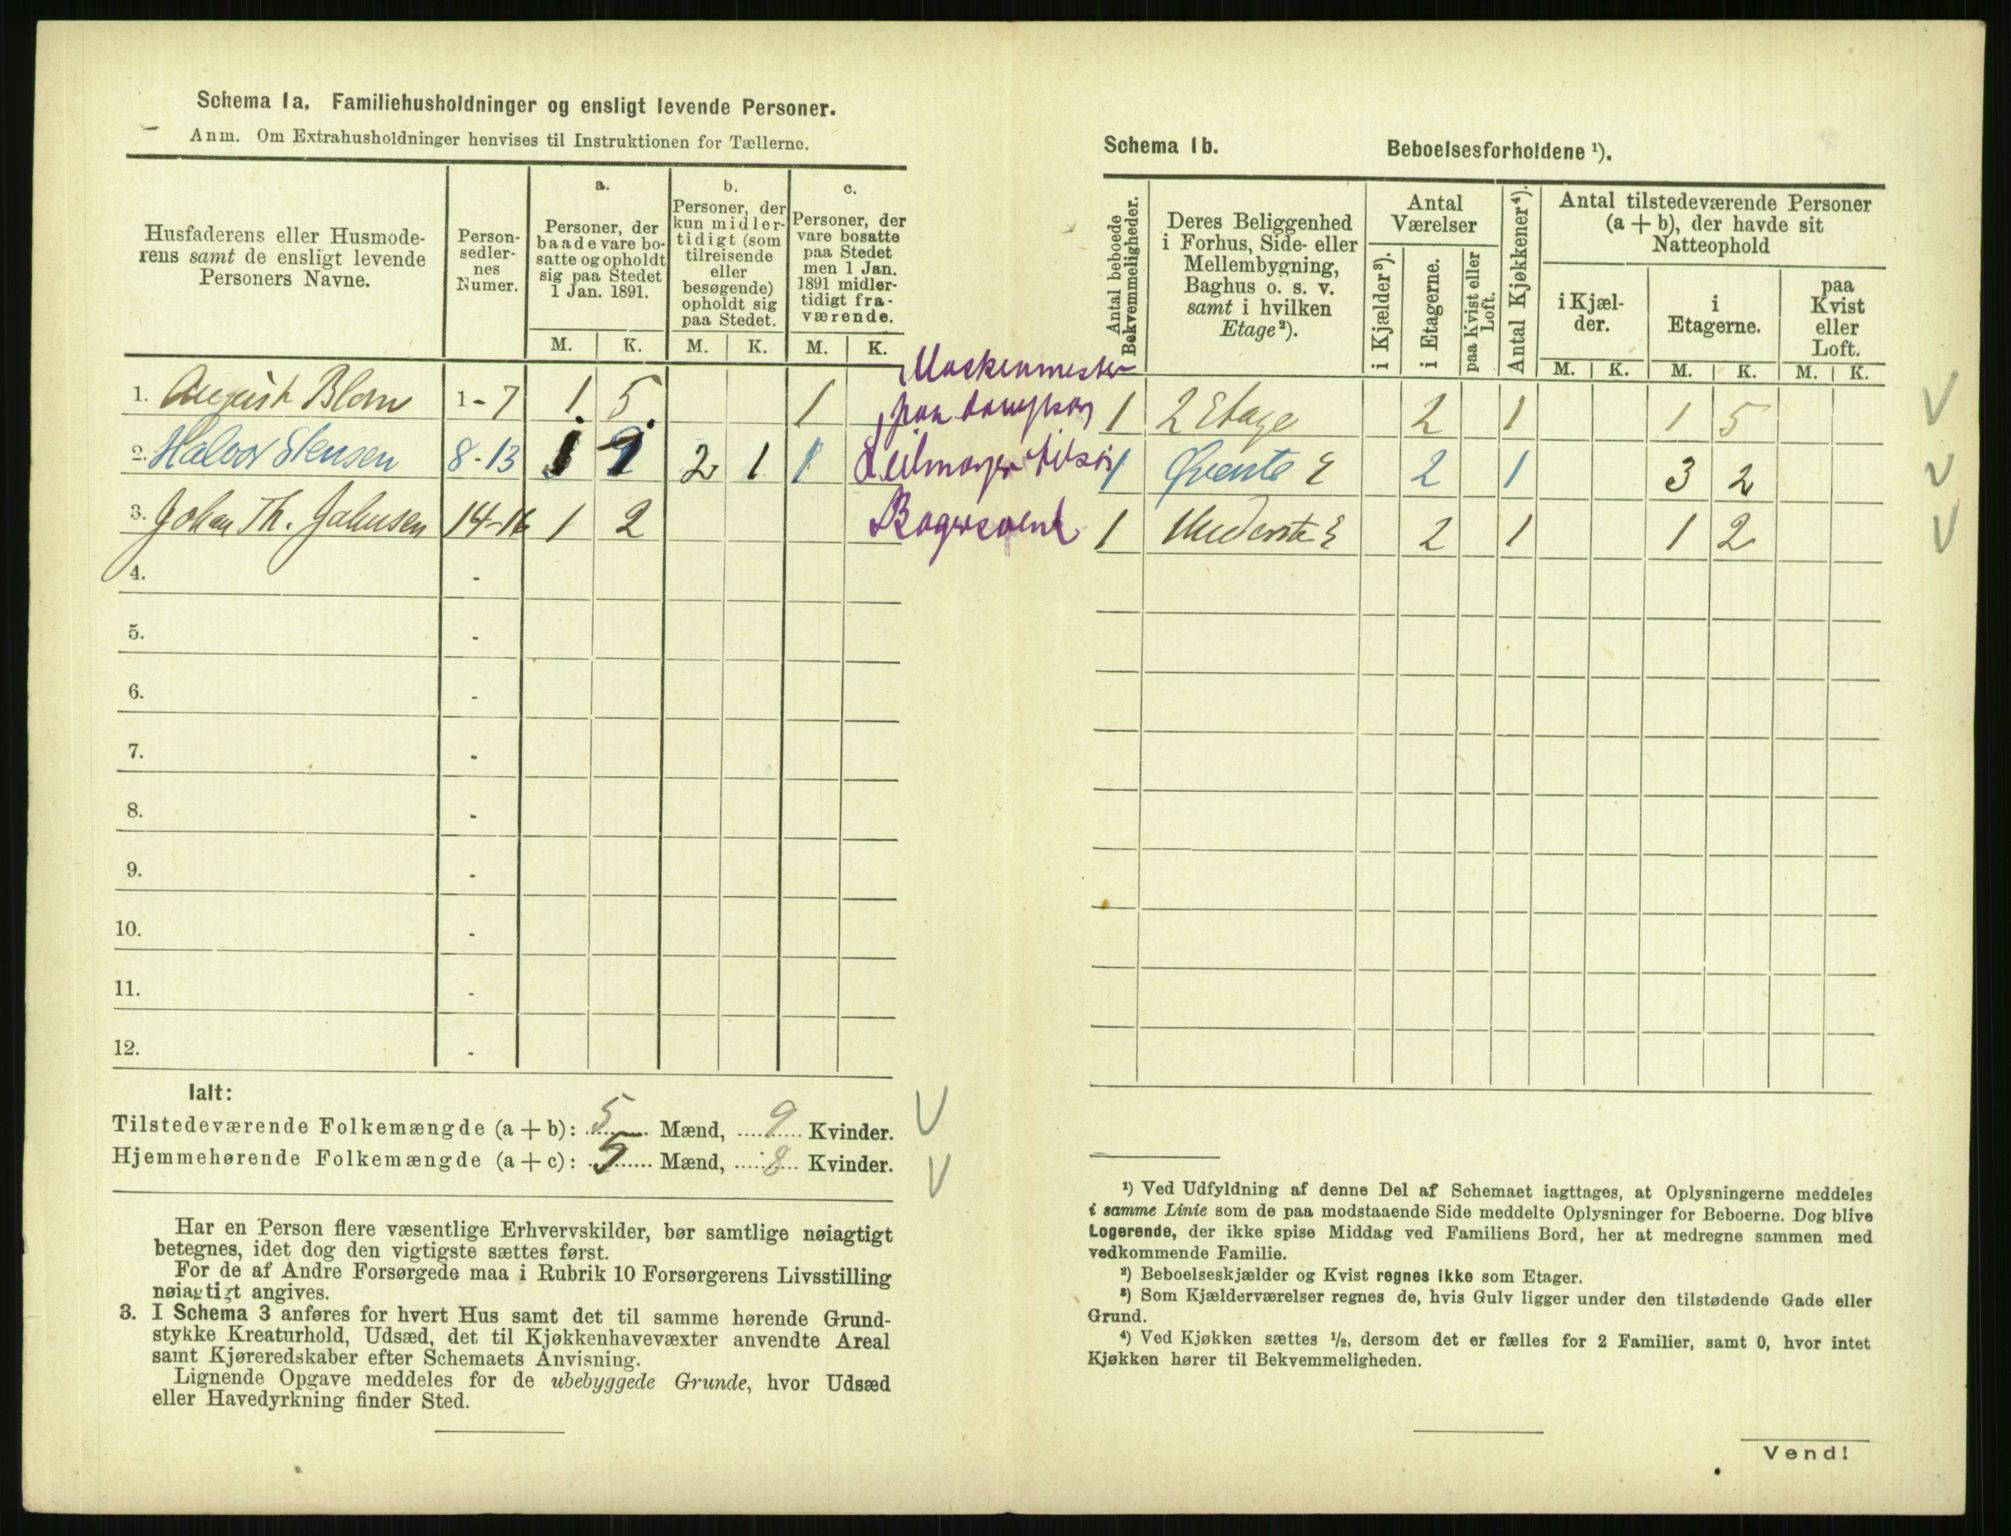 Schema 1a. Familiehusholdninger og ensligt levende Personer.
Anm. Om Extrahusholdninger henvises til Instruktionen for Tællerne.
Husfaderens eller Husmode-
rens samt de ensligt levende
Personers Navne.
Person-
sedler-
nes
Numer.
a.
Personer, der
baade vare bo-
satte og opholdt
sig paa Stedet
1 Jan. 1891.
b.
Personer, der
kun midler-
tidigt (som
tilreisende
eller
besøgende)
opholdt sig
paa Stedet.
c.
Personer, der
vare bosatte
paa Stedet
men 1 Jan.
1891 midler-
tidigt fra-
værende.
M. K. M. K. M. K.
1. August Blom 1-7 1 5 1
2. Halvor Stensen 8-13 2 1 1
3. Johan Th. Jahnsen 14-16 1 2
4. -
5. -
6. -
7. -
8. -
9. -
10. -
11. -
12. -
Ialt:
Tilstedeværende Folkemængde (a + b): 5 Mænd, 9 Kvinder.
Hjemmehørende Folkemængde (a + c): 5 Mænd, 8 Kvinder.
Har en Person flere væsentlige Erhvervskilder, bør samtlige nøiagtigt
betegnes, idet dog den vigtigste sættes først.
For de af Andre Forsørgede maa i Rubrik 10 Forsørgerens Livsstilling
nøiagtigt angives.
3. I Schema 3 anføres for hvert Hus samt det til samme hørende Grund-
stykke Kreaturhold, Udsæd, det til Kjøkkenhavevæxter anvendte Areal
samt Kjøreredskaber efter Schemaets Anvisning.
Lignende Opgave meddeles for de ubebyggede Grunde, hvor Udsæd
eller Havedyrkning finder Sted.
Schema 1b. Beboelsesforholdene ¹).
Antal beboede
Bekvemmeligheder.
Deres Beliggenhed
i Forhus, Side- eller
Mellembygning,
Baghus o. s. v.
samt i hvilken
Etage²).
Antal
Værelser
i Kjælder³).
i Etagerne.
paa Kvist eller
Loft.
Antal Kjøkkener⁴).
Antal tilstedeværende Personer
(a + b), der havde sit
Natteophold
i Kjæl-
der.
i
Etagerne.
paa
Kvist
eller
Loft.
M. K. M. K. M. K.
Maskenmester
paa
1 2 Etage 2 1 1 5
1 Øverste E 2 1 3 2
Bagersvend
1 Underste E 2 1 1 2
¹) Ved Udfyldning af denne Del af Schemaet iagttages, at Oplysningerne meddeles
i samme Linie som de paa modstaaende Side meddelte Oplysninger for Beboerne. Dog blive
Logerende, der ikke spise Middag ved Familiens Bord, her at medregne sammen med
vedkommende Familie.
²) Beboelseskjælder og Kvist regnes ikke som Etager.
³) Som Kjælderværelser regnes de, hvis Gulv ligger under den tilstødende Gade eller
Grund.
⁴) Ved Kjøkken sættes ½, dersom det er fælles for 2 Familier, samt 0, hvor intet
Kjøkken hører til Bekvemmeligheden.
Vend!